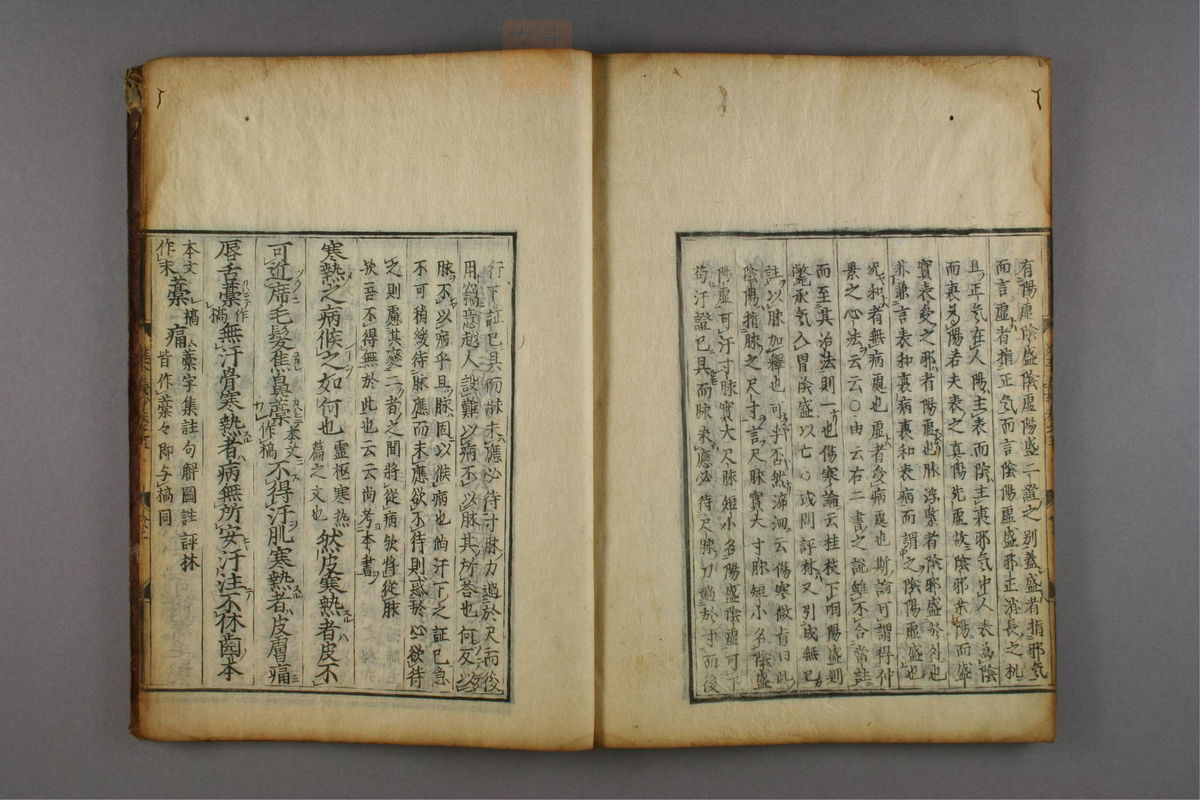 有陽虛陰盛陰虛陽盛二證之別蓋盛者指邪気
而言虛者指正気而言陰陽虛盛邪正消長之机
且正気在人陽主表而陰主裏邪気中人表為陰
而裏為陽若夫表之真陽先虛故陰邪乘陽而盛
實表受之邪者陽虛也脉浮緊者陰邪盛於外也
養兼言表和裏病裏和表病而謂之陰陽虛盛也
况和者無病處也虛者受病處也斯論可謂得仲
景之心法云云○由云右二書之說雖不合當註
而至其治法則一也傷寒論云桂枝下咽陽盛則
斃承気入胃陰盛以亡○或問評林又引成無已
註以脉加釋也可乎否然涕泗云傷寒微旨曰此
陰陽指脉之尺寸言尺脉實大寸脉短小名陰盛
陽虛可汗寸脉實大尺脉短小名陽盛陰虛可下
苟汗證已具而脉未應必待尺脉力過於寸而後
行下証已具而脉未應必待寸脉力過於尺而後
用竊意越人設難以病不以脉其所答也何反以
脉不以病乎且脉固以候病也倘汗下之証已急
不可稍緩待脉應而未應欲不待則惑於心欲待
之則慮其變二者之間將從病欤將從脉
欤吾不得無於此也云云尚考本書
寒熱之病候之如何也靈枢寒热篇之文也然皮寒熱者皮不
可近席毛髮焦鼻藁本文作槁不得汗肌寒熱者皮膚痛
唇舌藁作槁無汗骨寒熱者病無所安汗注不休齒本
本文作末藁槁痛藁字集註句解圖註評林
昔作藁々即与槁同